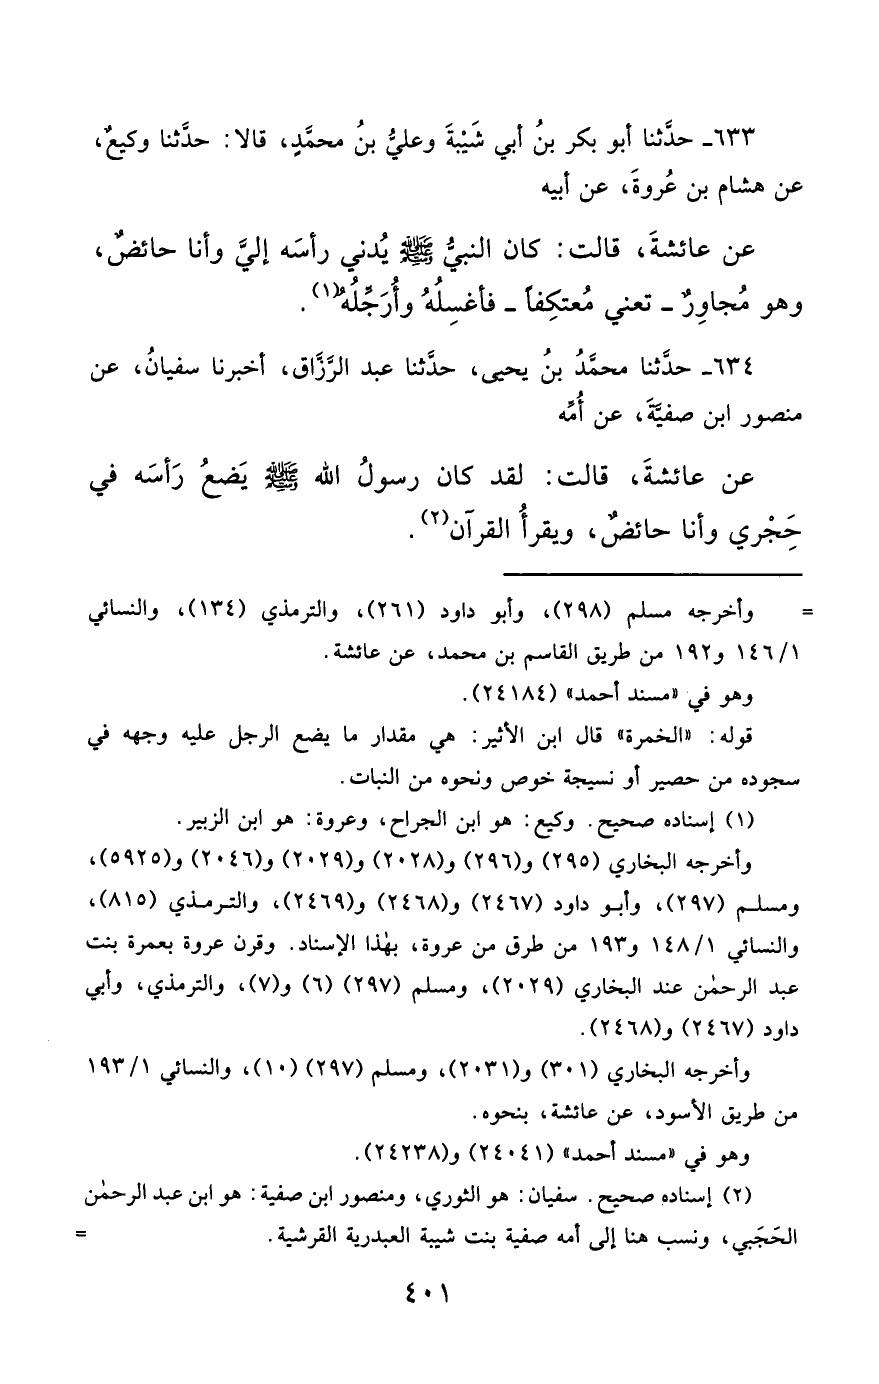 ٦٣٣ـ حدَّثنا أبو بكر بنُ أبي شَيْبةَ وعليُّ بنُ محمَّدٍ، قالا: حدَّثنا وكيعٌ،
عن هشام بن عُروةَ، عن أبيه
عن عائشةَ، قالت: كان النبيُّ ﷺ يُدني رأسَه إليَّ وأنا حائضٌ،
وهو مُجاوِرٌ ـ تعني مُعتكِفاً ـ فأغسِلُهُ وأُرَجِّلُهُ(١).
٦٣٤ـ حدَّثنا محمَّدُ بنُ يحيى، حدَّثنا عبد الرَّزَّاق، أخبرنا سفيانُ، عن
منصور ابن صفيَّةَ، عن أُمِّه
عن عائشةَ، قالت: لقد كان رسولُ الله ﷺ يَضعُ رَأسَه في
حَِجْري وأنا حائضٌ، ويقرأُ القرآن(٢).
= وأخرجه مسلم (٢٩٨)، وأبو داود (٢٦١)، والترمذي (١٣٤)، والنسائي
١٤٦/١ و١٩٢ من طريق القاسم بن محمد، عن عائشة.
وهو في «مسند أحمد» (٢٤١٨٤).
قوله: «الخمرة» قال ابن الأثير: هي مقدار ما يضع الرجل عليه وجهه في
سجوده من حصير أو نسيجة خوص ونحوه من النبات.
(١) إسناده صحيح. وكيع: هو ابن الجراح، وعروة: هو ابن الزبير.
وأخرجه البخاري (٢٩٥) و(٢٩٦) و(٢٠٢٨) و(٢٠٢٩) و(٢٠٤٦) و(٥٩٢٥)،
ومسلم (٢٩٧)، وأبو داود (٢٤٦٧) و(٢٤٦٨) و(٢٤٦٩)، والترمذي (٨١٥)،
والنسائي ١٤٨/١ و١٩٣ من طرق من عروة، بهٰذا الإسناد. وقرن عروة بعمرة بنت
عبد الرحمٰن عند البخاري (٢٠٢٩)، ومسلم (٢٩٧) (٦) و(٧)، والترمذي، وأبي
داود (٢٤٦٧) و(٢٤٦٨).
وأخرجه البخاري (٣٠١) و(٢٠٣١)، ومسلم (٢٩٧) (١٠)، والنسائي ١٩٣/١
من طريق الأسود، عن عائشة، بنحوه.
وهو في «مسند أحمد» (٢٤٠٤١) و(٢٤٢٣٨).
(٢) إسناده صحيح. سفيان: هو الثوري، ومنصور ابن صفية: هو ابن عبد الرحمٰن
الحَجَبي، ونسب هنا إلى أمه صفية بنت شيبة العبدرية القرشية. =
٤٠١